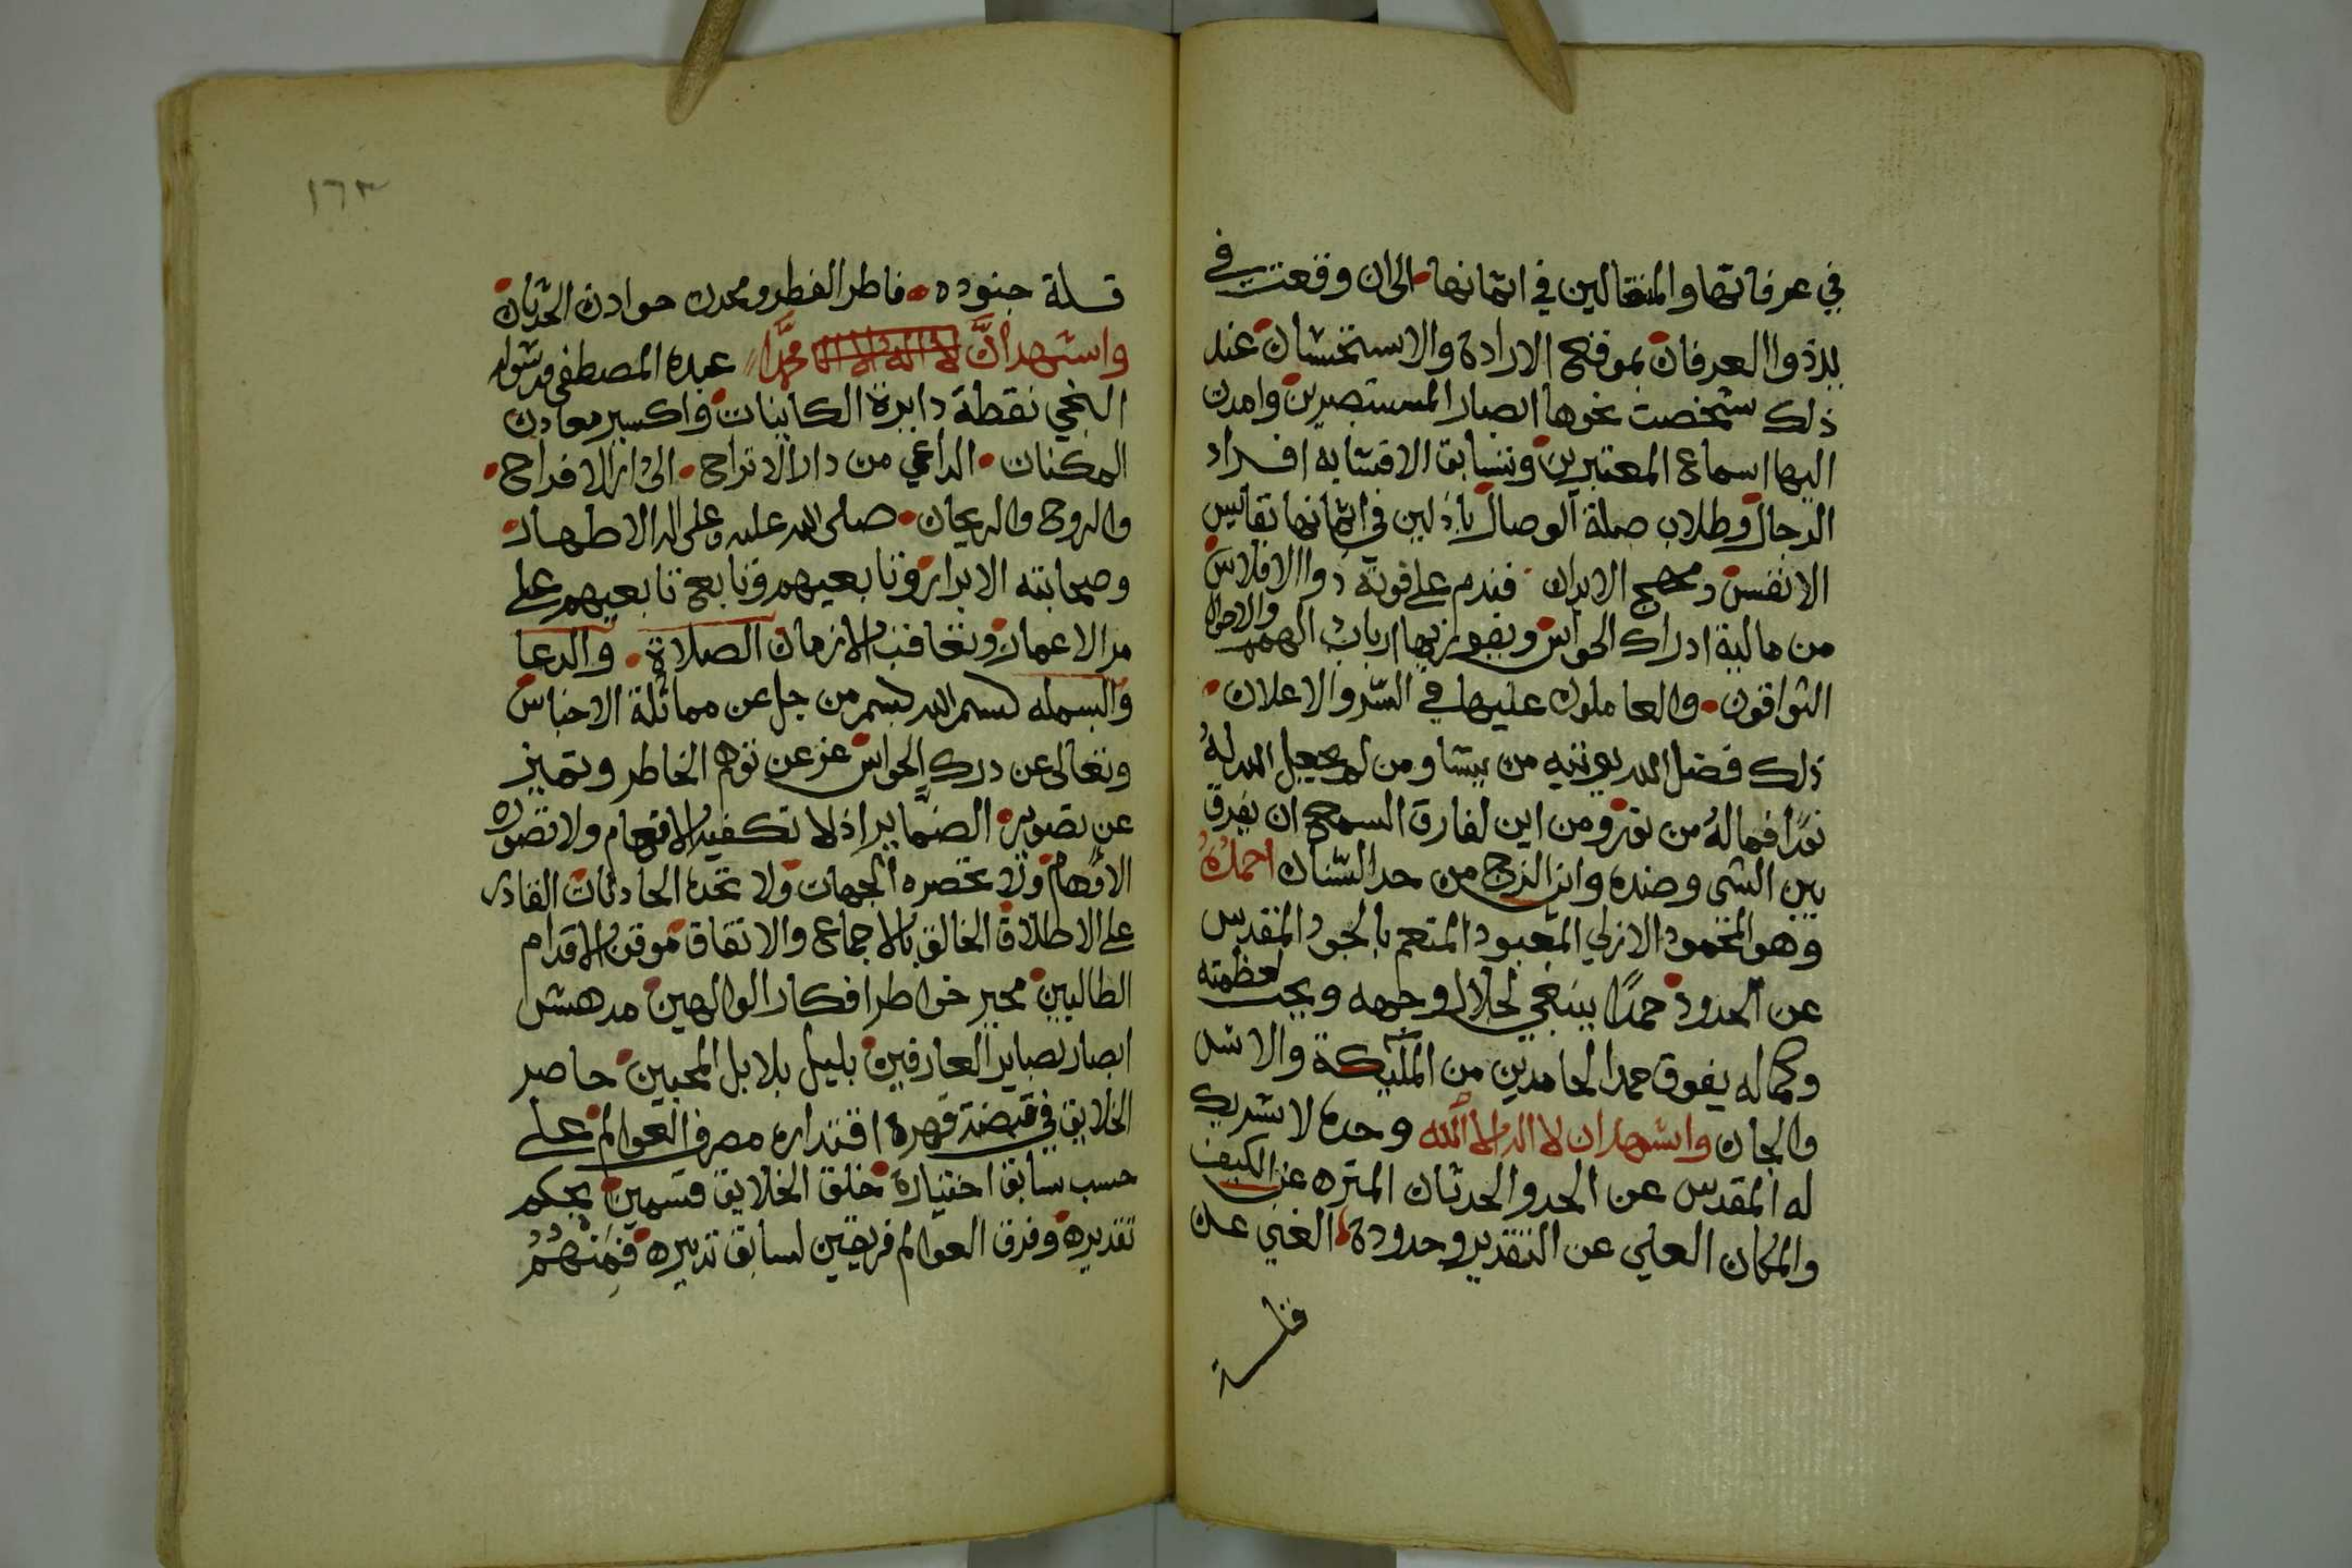 في عرفاتها والمنتقالين في اتمانها الى ان وقعت في
بيد ذوا العرفان بموقع الارادة والاستحسان عند
ذلك شخصت نحوها ابصار المستبصرين وامدت
اليها اسماع المعتبرين وتسابق الاقتشابه افراد
الرجال وطلاب صلة الوصال باذلين في اثمانها نفايس
الانفس ومهج الابدان فندم على فوته ذوا الافلاس
من مالية ادراك الحواس ويفوز بها ارباب الهمم والاحوال
التواقون والعاملون عليها في السر والاعلان
ذلك فضل الله يوتيه من يشا ومن لم يجعل الله لهُ
نورًا فماله من نور ومن اين لفارق السمح ان يفرق
بين الشي وضده واين الزج من حد السنان احمدُهُ
وهو المحمود الازلي المعبود المنعم بالجود المقدس
عن الحدود حمدًا ينبغي لجلال وجهه ويجب لعظمته
وكماله يفوق حمد الحامدين من الملٰيكة والانس
والجان واشهد ان لا اله الا الله وحده لا شريك
له المقدس عن الحد والحدثان المنزه عن الكيف
والمكان العلي عن التقدير وحدوده الغني عن
قلة
١٦٣
قلة جنوده فاطر الفطر ومحدث حوادث الحدثان
واشهد انَّ لا اله الا الله محمدًا عبده المصطفى ورسوله
النجي نقطة دايرة الكاينات واكسير معادن
الممكنات الداعي من دار الاتراح الى دار الافراح
والروح والريحان صلى الله عليه وعلى اله الاطهار
وصحابته الابرار وتابعيهم وتابع تابعيهم على
مر الاعمار وتعاقب الازمان الصلاة والدعا
والبسمله بسم الله بسم من جل عن مماثلة الاجناس
وتعالى عن درك الحواس عز عن توهم الخاطر وتميز
عن تصوير الضماير اذ لا تكفيه الافهام ولا تصوره
الاوهام ولا تحصره الجهات ولا تحده الحادثات القادر
على الاطلاق الخالق بالاجماع والاتفاق موقف الاقدام
الطالبين محير خواطر افكار الوالهين مدهش
ابصار بصاير العارفين بلبل بلابل المحبين حاصر
الخلايق في قبضة قهره اقتداره مصرف العوالم على
حسب سابق اختياره خلق الخلايق قسمين بحكم
تقديره وفرق العوالم فريقين لسابق تدبيره فَمِنْهُمْ